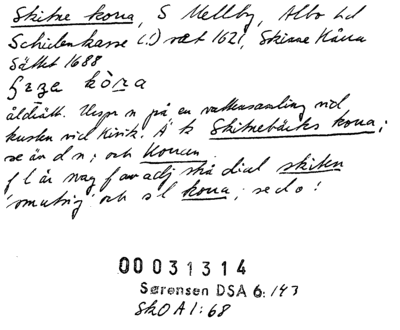 Skitne kona, S Mellby, Albo hd
Schidenkasse (!) rät 1621, Skinne Kåna
Sättet 1688
kò̱na
åldrått. Urspr n på en vattensamling vid
kusten vid Kivik. Är ts Skitnebäcks kona;
se än d n; och Konan
f l är svag f av adj sht dial skiten
'smutsig' och s l kona; se d o!
00031314
Sørensen DSA 6: 143
SkO A 1: 68